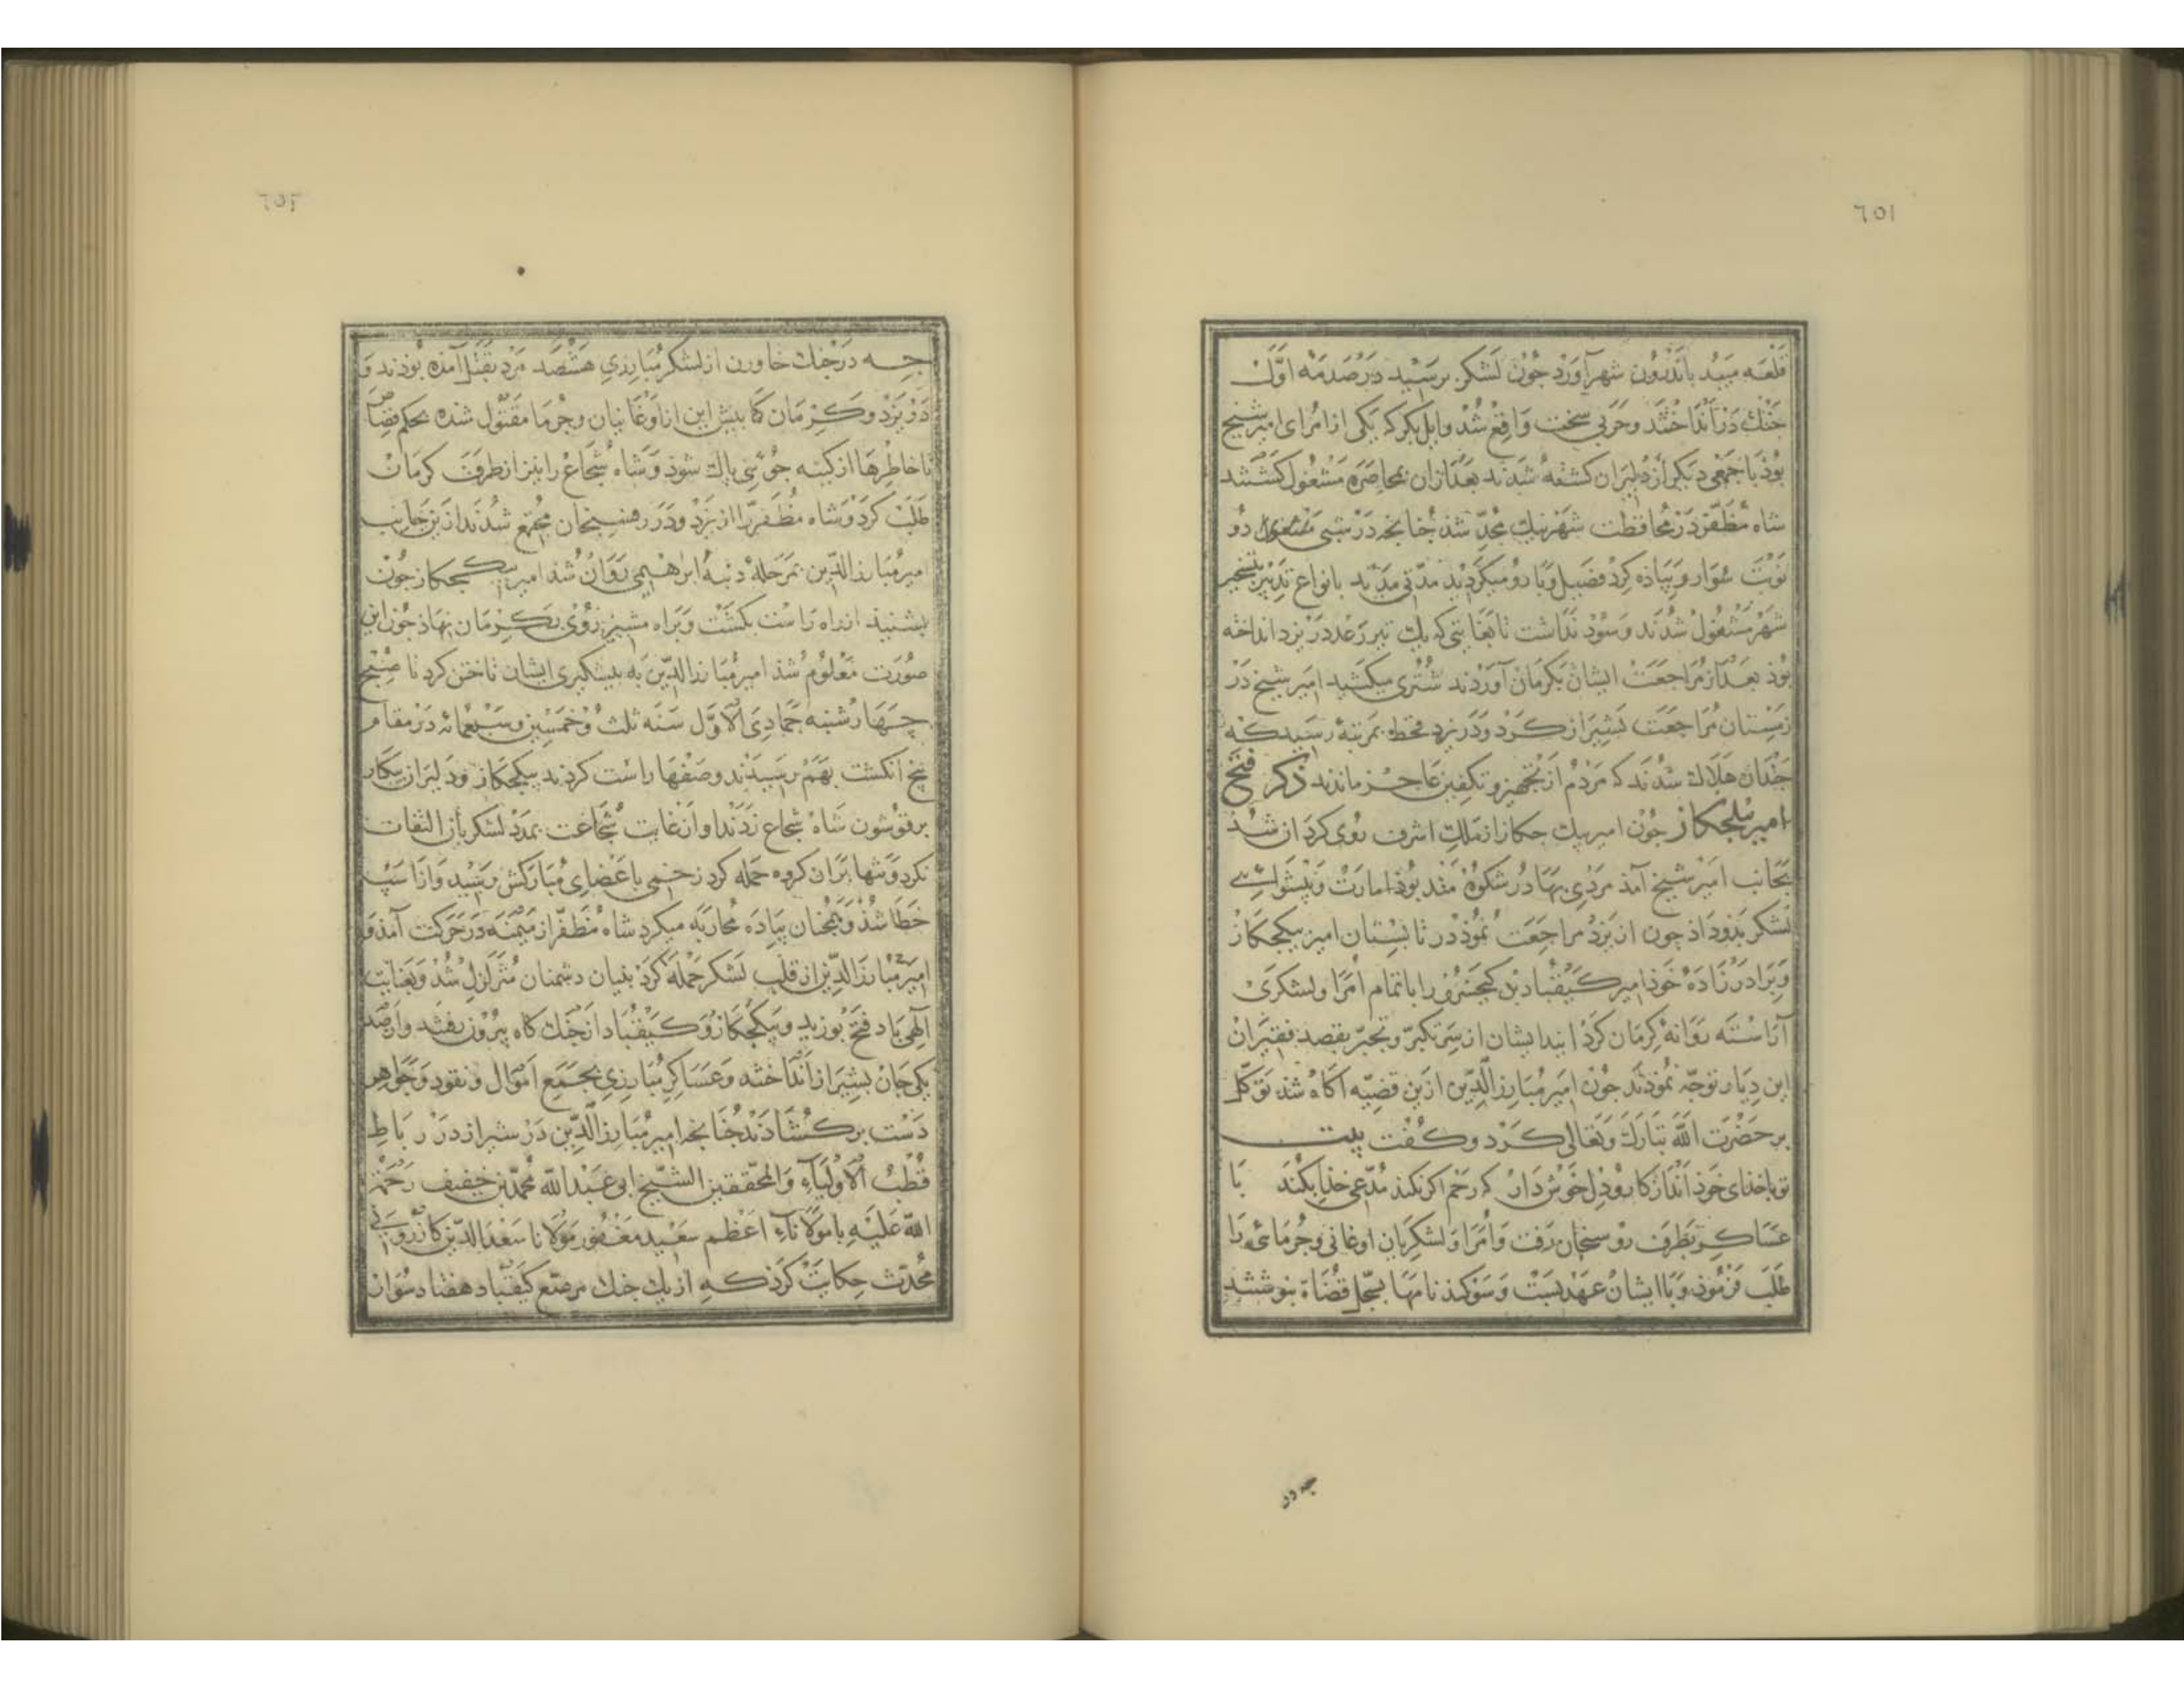 ٦٥١
قلعه میبد باندرون شهر آورد جون لشکر برسید در صدمه اول
جنک درانداختند و حربی سخت واقع شد و ابابکر که یکی از امرای امیر شیخ
بوذ با جمعی دیکر از دلیران کشته شدند بعد از ان بمحاصره مشغول کشتند
شاه مظفر در محافظت شهر نیک مجد شد جنانجه در شبی دو
نوبت سوار و پیاده کرد فصیل و بارو میکردید مدتی مدید بانواع تدبیر بتسخیر
شهر مشغول شدند و سود نداشت تا بغایتی که یک تیر رعد در یزد انداخته
بوذ بعد از مراجعت ایشان بکرمان آوردند شتری میکشید امیر شیخ در
زمستان مراجعت بشیراز کرد و در یزد قحط بمرتبه رسید که
جندان هلاک شدند که مردم از تجهیز و تکفین عاجز ماندند ذکر فتح
امیر بیکجکاز جون امیر بیک جکاز از ملک اشرف روی کردان شد
بجانب امیر شیخ آمذ مردی بهادر شکوه مند بوذ امارت و پیشوایی
لشکر بذو داذ جون از یزد مراجعت نموذ در تابستان امیر بیکجکاز
و برادرزاده خوذ امیر کیقباد بن کیخسرو را با تمام امرا و لشکری
آراسته روانه کرمان کرد ایشان از سر تکبر و تجبر بقصد فقیران
این دیار توجه نموذند جون امیر مبارز الدین ازین قضیه آکاه شد توکل
بر حضرت الله تبارک و تعالی کرد و کفت بیت
تو با خدای خوذ انداز کار و دل خوش دار که رحم اکر نکند مدعی خذا بکند با
عساکر بطرف روسنجان رفت و امرا و لشکریان اوغانی و جرمائی را
طلب فرموذ و با ایشان عهد بست و سوکند نامها بسجل قضاة بنوشتند
جه در
٦٥٢
جه در جنک خاورن از لشکر مبارزی هشصد مرد بقتل آمده بوذند و
در یزد و کرمان کما بیش این از اوغانیان و جرما مقتول شده بحکم قضا
تا خاطرها از کینه جوئی پاک شوذ و شاه شجاع را نیز از طرف کرمان
طلب کرد و شاه مظفر را از یزد و در مجتمع شدند ازین جانب
امیر مبارز الدین بمرحله دنبه ابرهیمی روان شد امیر بیکجکاز جون
بشنید از راه راست بکشت و براه مشیز روی بکرمان نهاذ جون این
صورت معلوم شذ امیر مبارز الدین به پیشکیری ایشان تاختن کرد تا صبح
جهارشنبه جمادی الاول سنه ثلث و خمسین و سبعمائه در مقام
پنج انکشت بهم رسیدند و صفها راست کردند بیکجکاز و دلیران بیکبار
بر قوشون شاه شجاع زدند و او از غایت شجاعت بمدد لشکر باز التفات
نکرد و تنها بران کروه حمله کرد زخمی باعضای مبارکش رسید و از اسب
خطا شذ و همجنان پیاده محاربه میکرد شاه مظفر از میمنه در حرکت آمذ و
امیر مبارز الدین از قلب لشکر حمله کرد بنیان دشمنان متزلزل شد و بعنایت
الهی باد فتح بوزید و بیکجکاز و کیقباد از جنک کاه بیرون رفتند و از صد
یکی جان بشیراز انداختند و عساکر مبارزی بجمع اموال و نقود و جواهر
دست برکشاذند جنانجه امیر مبارز الدین در شیراز در رباط
قطب الاولیاء و المحققین الشیخ ابی عبد الله محمد بن خفیف رحمة
الله علیه با مولاناء اعظم سعید مغفور مولانا سعد الدین کازرونی
محدث حکایت کرذ که از یک خنک مرصع کیقباد هفتاد سوار